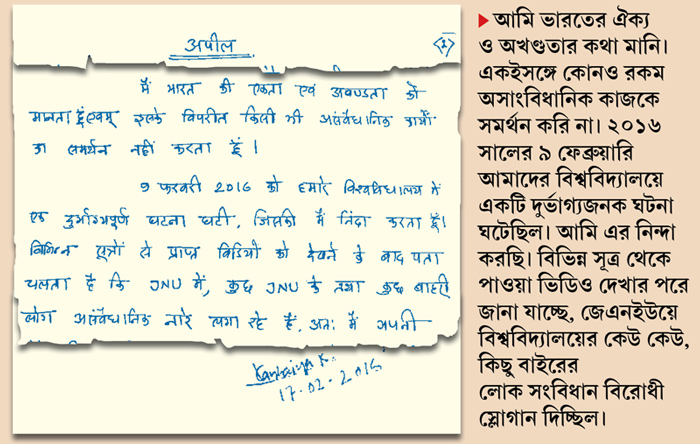 अपील
<1>
मैं भारत की एकता एवं अखण्डता को
मानता हूं एवम् इसके विपरीत किसी भी असंवैधानिक कार्यों
का समर्थन नहीं करता हूँ ।
9 फरवरी 2016 को हमारे विश्वविद्यालय में
एक दुर्भाग्यपूर्ण घटना घटी, जिसकी मैं निंदा करता हूँ।
विभिन्न सूत्रों से प्राप्त विडियो को देखने के बाद पता
चलता है कि JNU में, कुछ JNU के तथा कुछ बाहरी
लोग असंवैधानिक नारे लगा रहे हैं, अतः मैं अपनी
Kanhaiya K.
17-02-2016
▶ আমি ভারতের ঐক্য
ও অখণ্ডতার কথা মানি।
একইসঙ্গে কোনও রকম
অসাংবিধানিক কাজকে
সমর্থন করি না। ২০১৬
সালের ৯ ফেব্রুয়ারি
আমাদের বিশ্ববিদ্যালয়ে
একটি দুর্ভাগ্যজনক ঘটনা
ঘটেছিল। আমি এর নিন্দা
করছি। বিভিন্ন সূত্র থেকে
পাওয়া ভিডিও দেখার পরে
জানা যাচ্ছে, জেএনইউয়ে
বিশ্ববিদ্যালয়ের কেউ কেউ,
কিছু বাইরের
লোক সংবিধান বিরোধী
স্লোগান দিচ্ছিল।